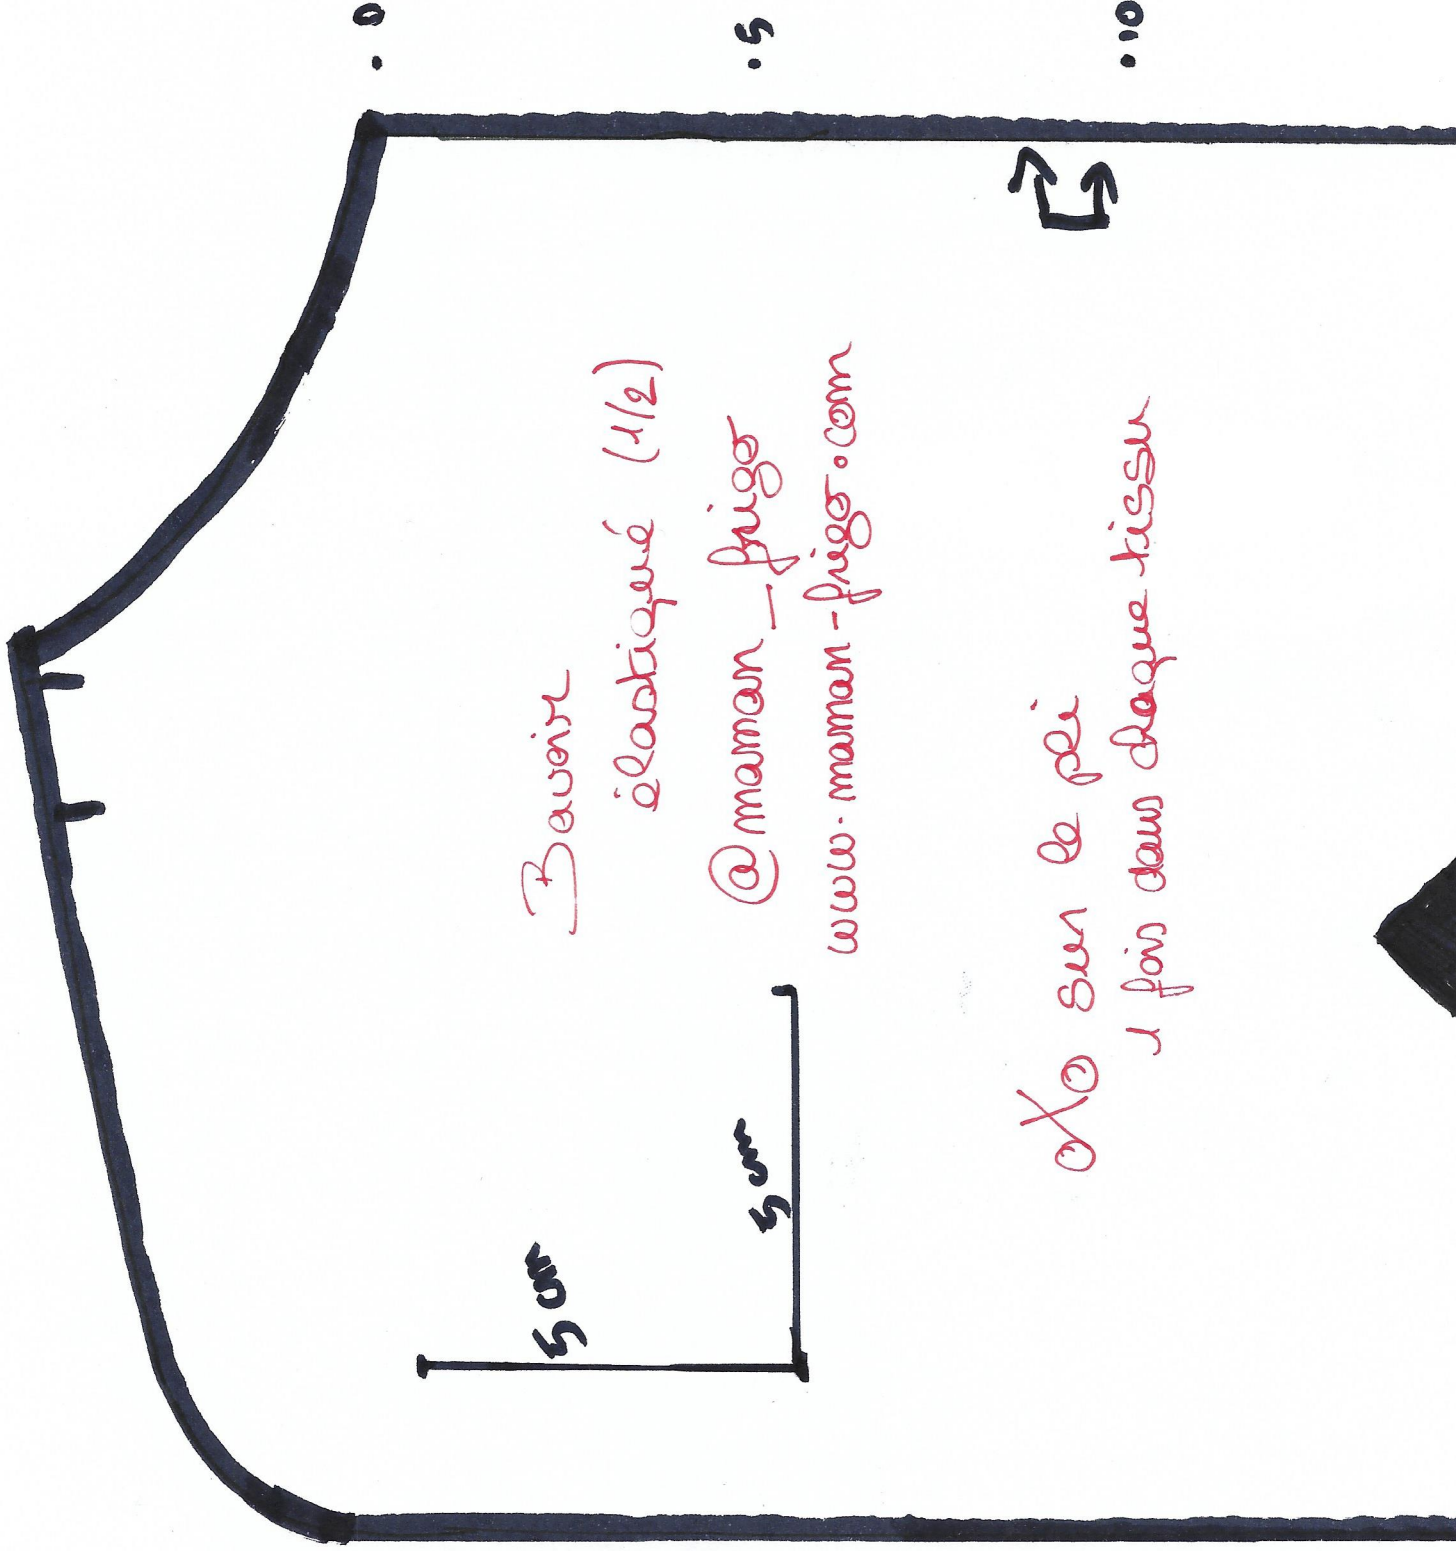 . 0
. 5
. 10
Bavoir
élastiqué (1/2)
@maman_frigo
www.maman-frigo.com
5 cm
5 cm
sur le pli
1 fois dans chaque tissu